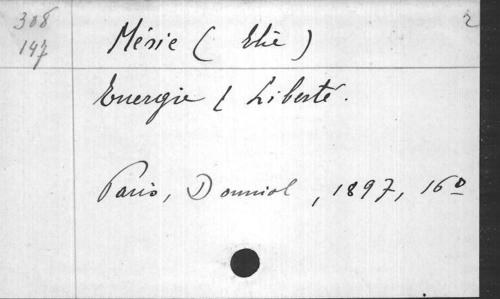 308
147
Mérie (Elie)
2
Energie & Liberté.
Paris, Douniol, 1897, 16º